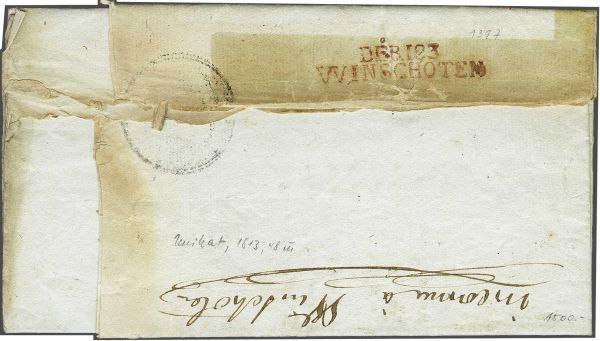 1397
DEB.123
WINSCHOTEN
Unikat, 1813, 48 m
inconnu à Winschoten
1500.-